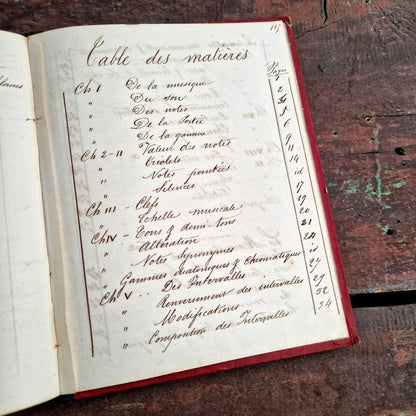 Table des matières
Page
Ch I De la musique 2
" Du son
" Des notes
" De la Portée 5
" De la gamme 6
Ch 2-II Valeur des notes 9
" Triolets 11
" Notes pointées 14
" Silences id
Ch III - Clefs 17
" Echelle musicale 19
Ch IV - Tons & demi-tons 20
" Altération 21
" Notes Synonymes 24
" Gammes diatoniques & chromatiques id
Ch V " Des Intervalles 27
" Renversement des intervalles 29
" Modifications 32
" Composition des Intervalles 34